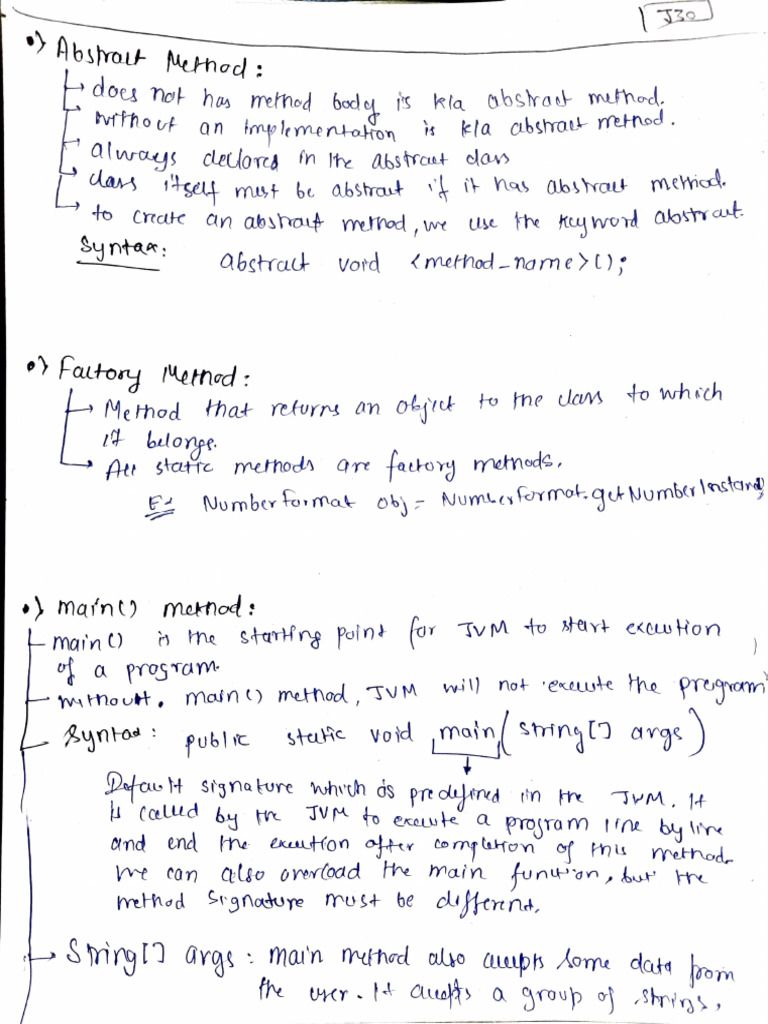 J30
•) Abstract Method:
does not has method body is k/a abstract method.
without an implementation is k/a abstract method.
always declared in the abstract class
class itself must be abstract if it has abstract method.
to create an abstract method, we use the keyword abstract.
Syntax: abstract void <method_name>();
•) Factory Method:
Method that returns an object to the class to which
it belongs.
All static methods are factory methods.
Ex NumberFormat obj = NumberFormat.getNumberInstance
•) main() method:
main() is the starting point for JVM to start execution
of a program.
without main() method, JVM will not execute the program
Syntax: public static void main(String[] args)
Default signature which is predefined in the JVM. It
is called by the JVM to execute a program line by line
and end the execution after completion of this method.
we can also overload the main function, but the
method signature must be different.
String[] args: main method also accepts some data from
the user. It accepts a group of strings,